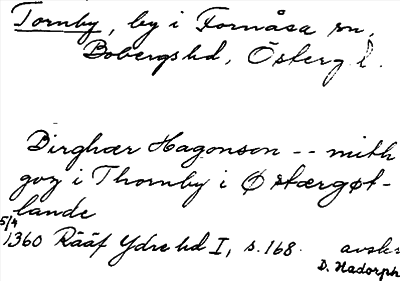 Tornby, by i Fornåsa sn,
Bobergs hd, Östergl.
Birghær Hagonson -- mith
goz i Thornby i Østærgøt-
lande
5/4 1360 Rääf Ydre hd I, s. 168. avskr
D. Hadorph